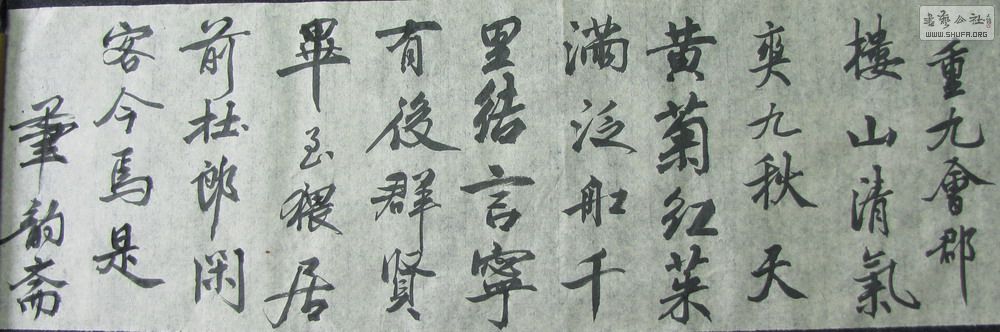 重九會郡
樓山清氣
爽九秋天
黄菊紅茱
滿泛舡千
里結言寧
有後群賢
畢至猥居
前杜郎閑
客今焉是
筆韵斋
書藝公社
WWW.SHUFA.ORG